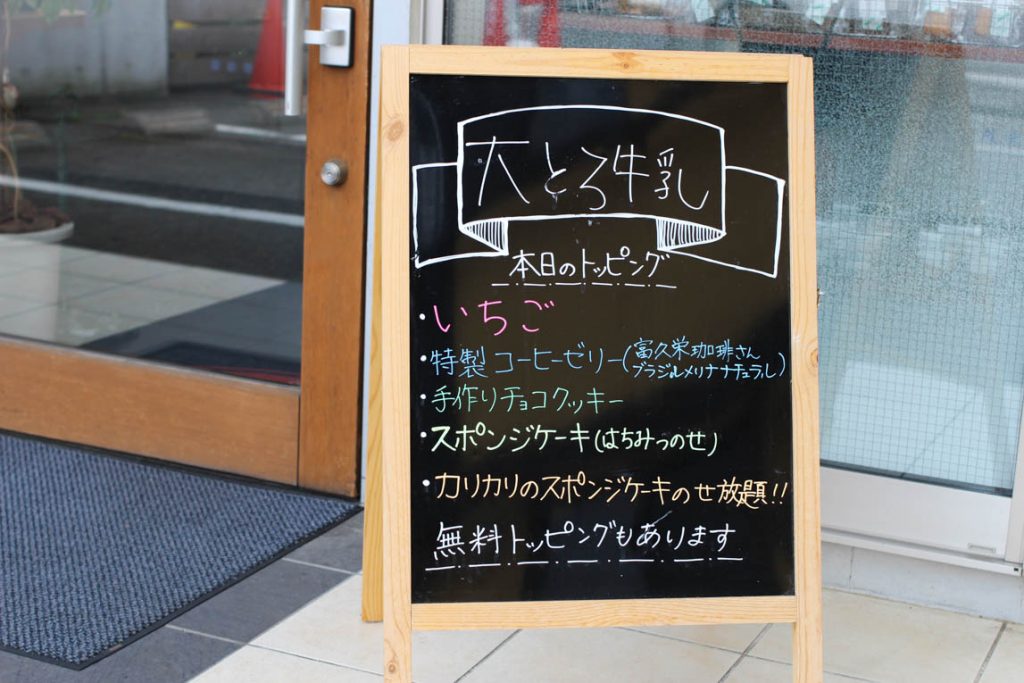 大とろ牛乳
本日のトッピング
・いちご
・特製コーヒーゼリー(富久栄珈琲さん
ブラジルメリナナチュラル)
・手作りチョコクッキー
・スポンジケーキ(はちみつのせ)
・カリカリのスポンジケーキのせ放題!!
無料トッピングもあります